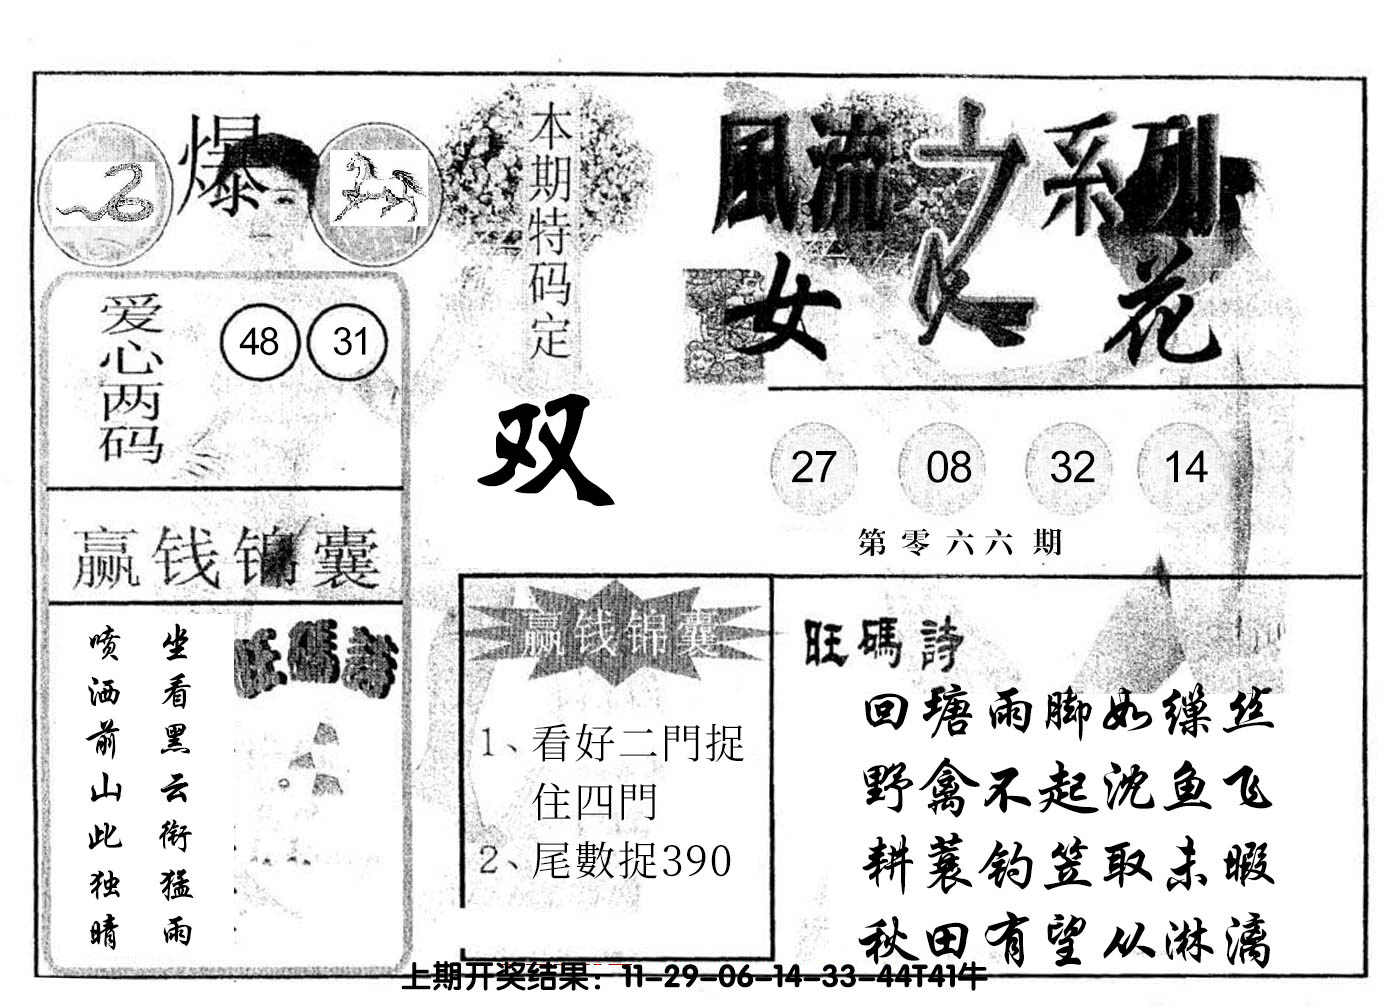 爆
本期特码定
双
爱心两码
48 31
赢钱锦囊
坐看黑云衔猛雨
喷洒前山此独晴
旺碼詩
赢钱锦囊
1、看好二門捉
住四門
2、尾數捉390
風流之系列
女人花
27 08 32 14
第零六六期
旺碼詩
回瑭雨脚如缫丝
野禽不起沈鱼飞
耕蓑钓笠取未暇
秋田有望从淋漓
上期开奖结果：11-29-06-14-33-44T41牛